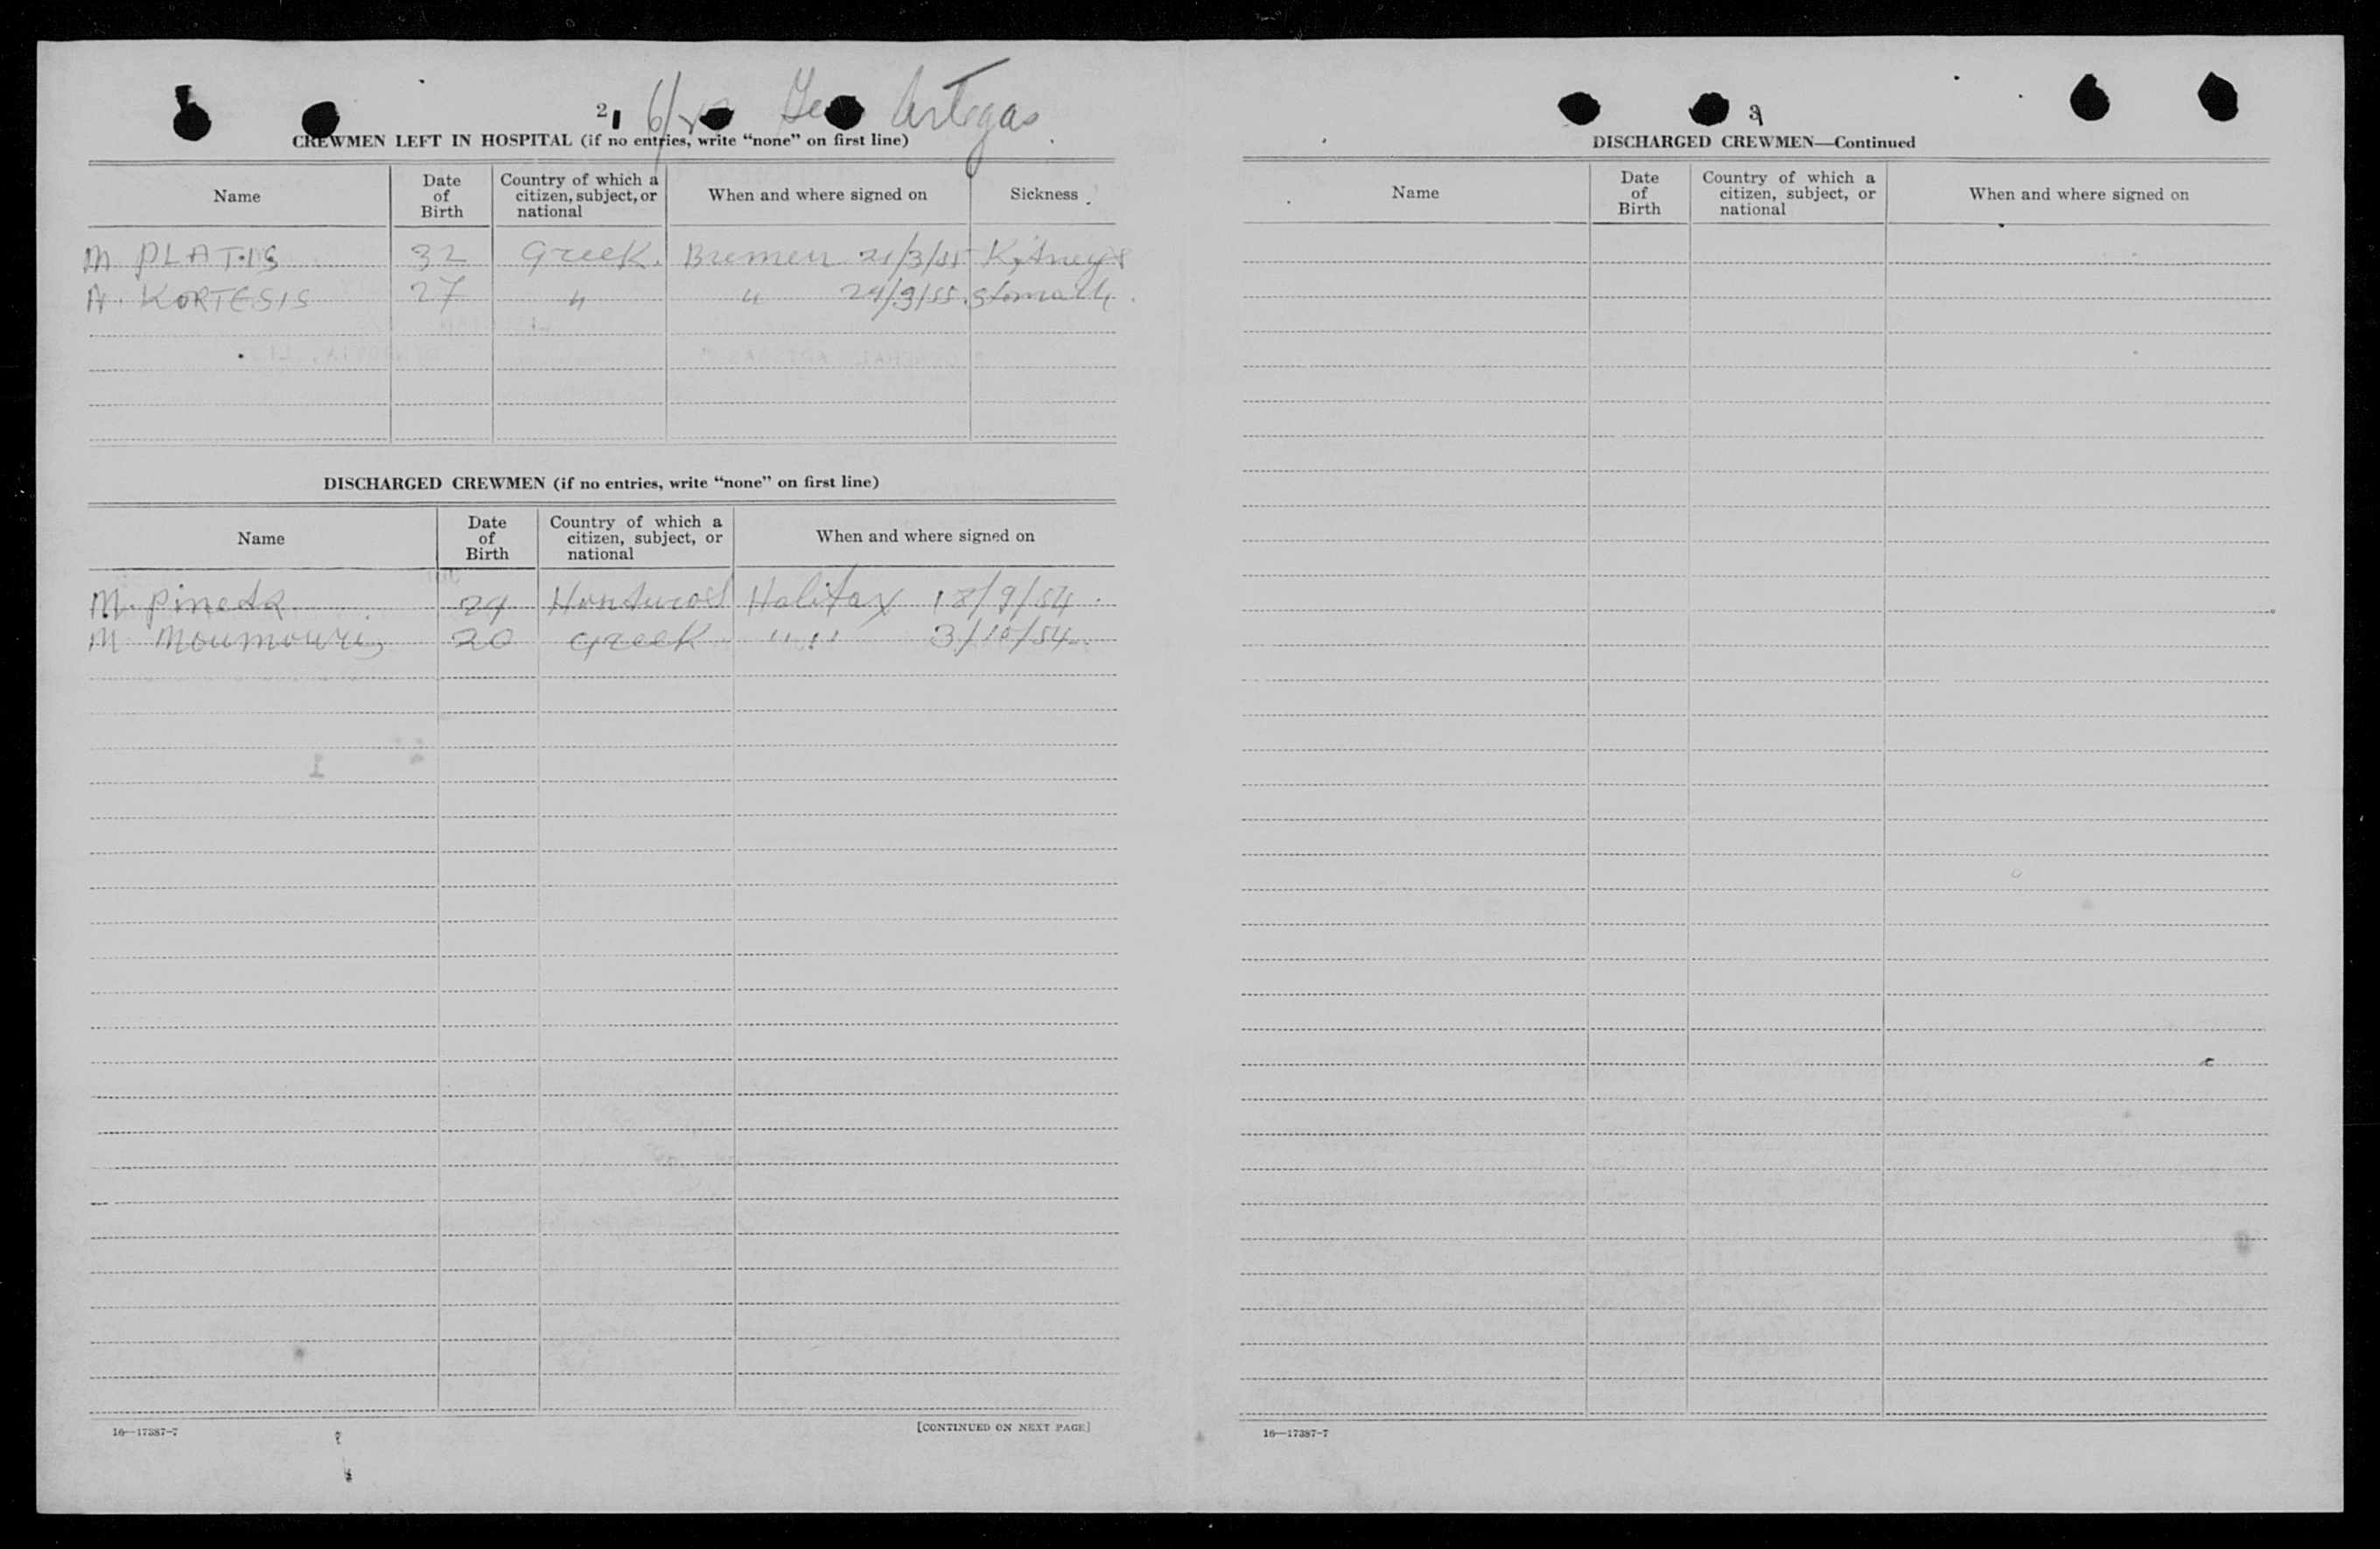 2
6/ Gen Artigas
CREWMEN LEFT IN HOSPITAL (if no entries, write “none” on first line)
Name Date of Birth Country of which a citizen, subject, or national When and where signed on Sickness
M PLATIS 32 Greek. Bremen 21/3/55 Kidneys
A. KORTESIS 27 " " 24/3/55. Stomach.
DISCHARGED CREWMEN (if no entries, write “none” on first line)
Name Date of Birth Country of which a citizen, subject, or national When and where signed on
M. Pineda 24 Halifax 18/9/54.
M Moumouris 20 Greek " " 3/10/54.
16—17387-7 [CONTINUED ON NEXT PAGE]
3
DISCHARGED CREWMEN—Continued
Name Date of Birth Country of which a citizen, subject, or national When and where signed on
16—17387-7